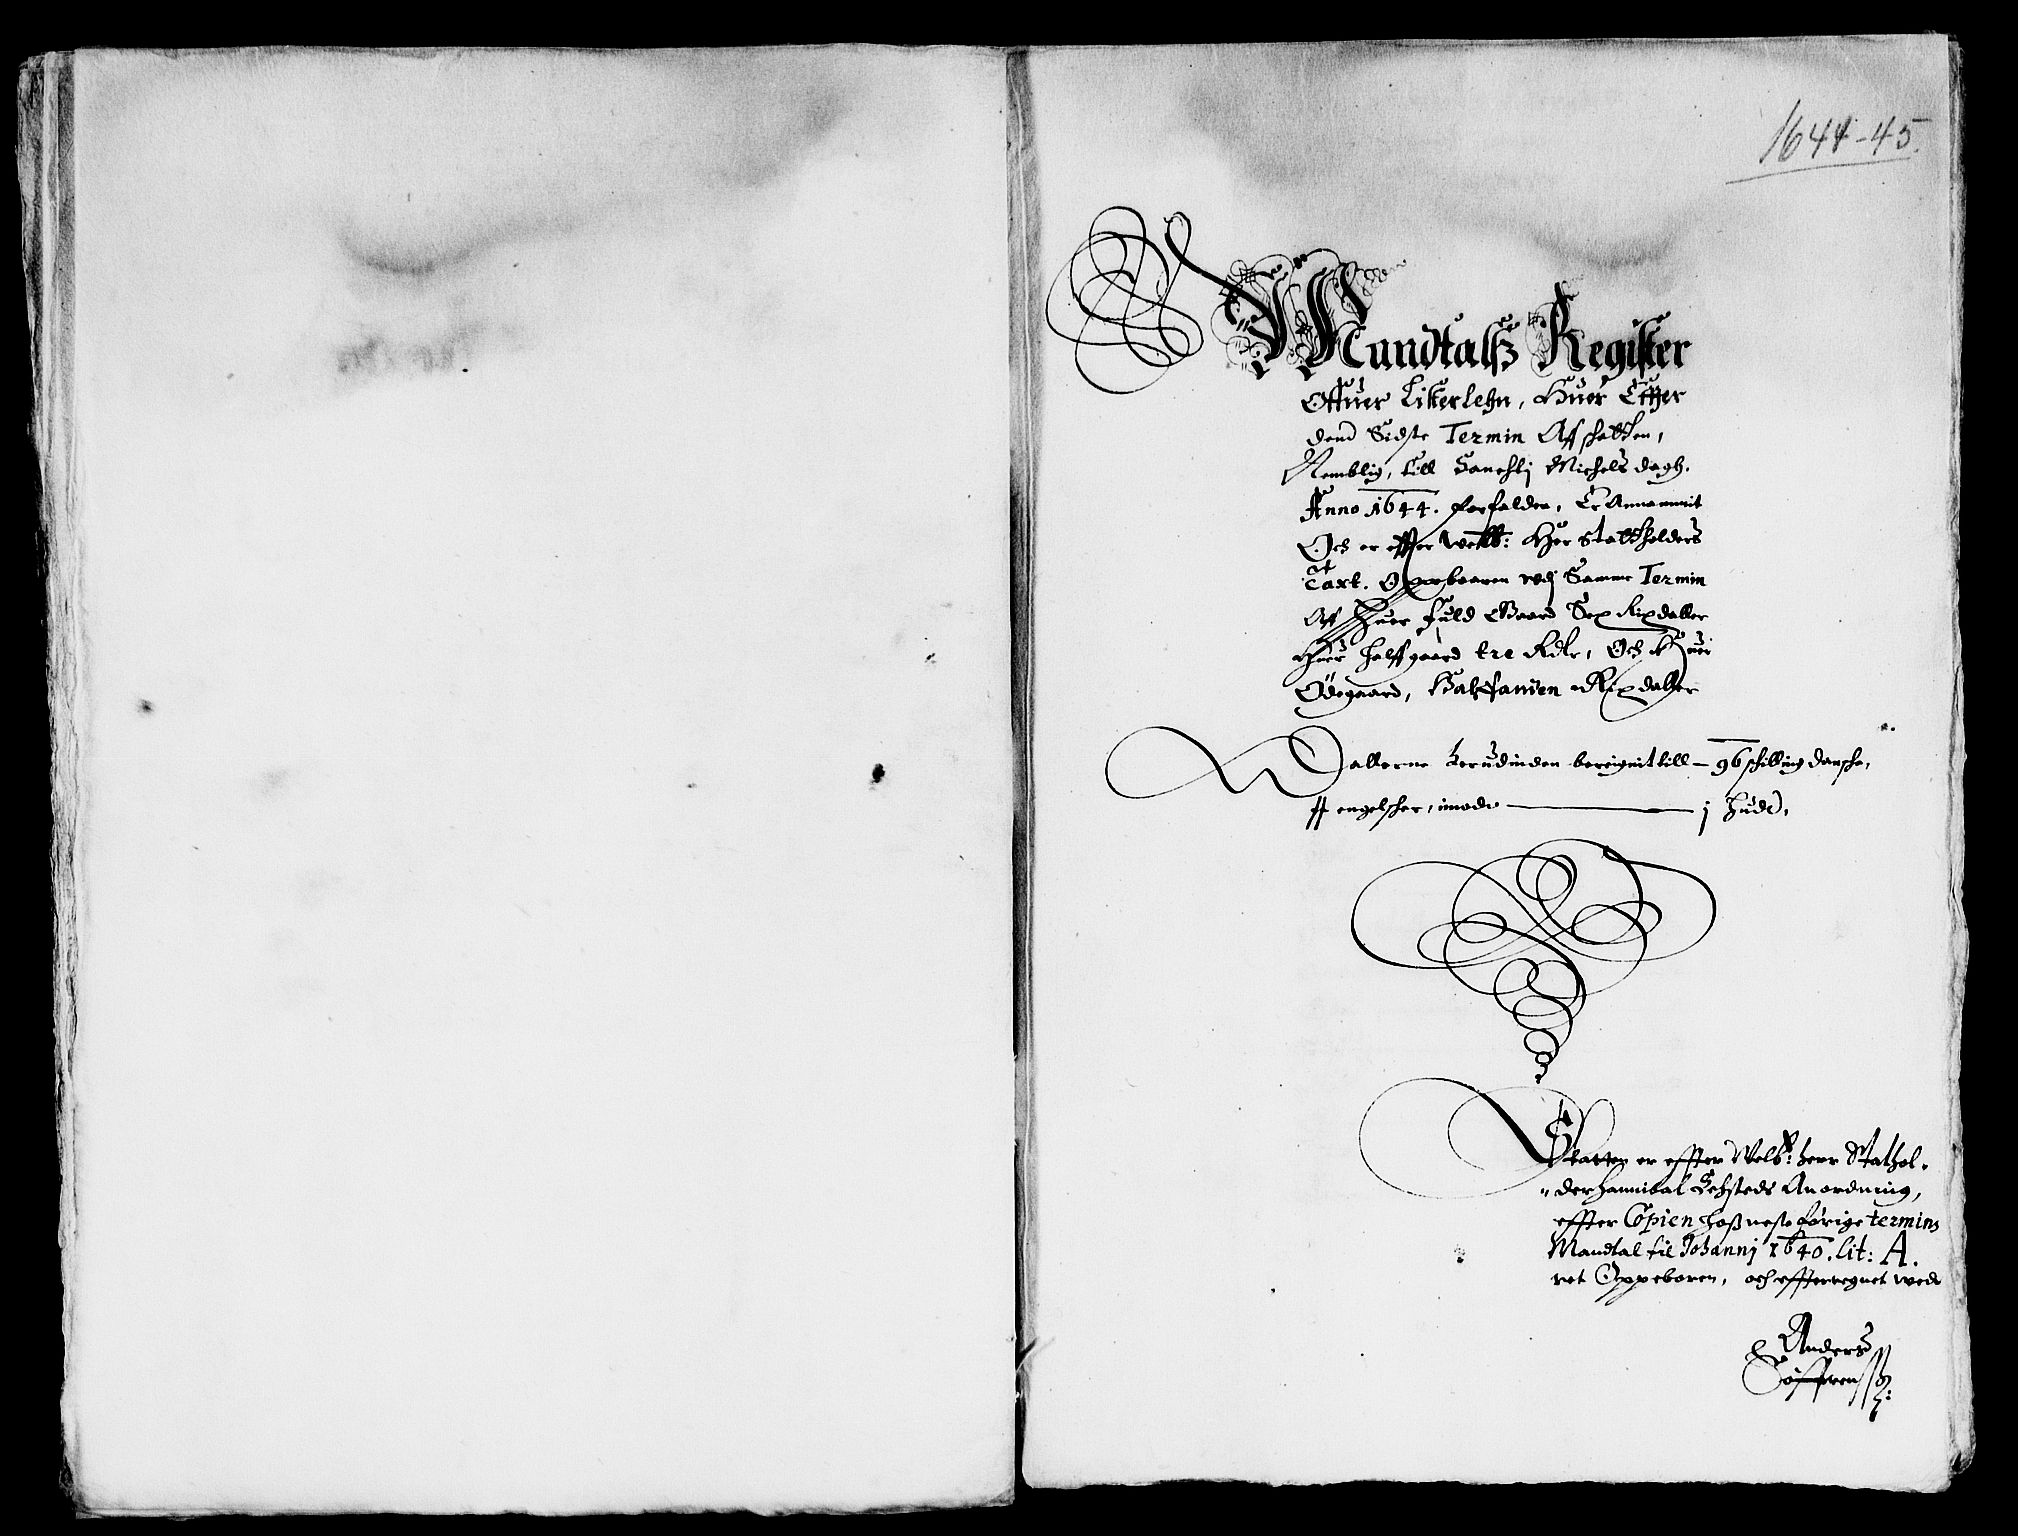 1644-45.
Mandtalß Register
Offuer Listerlehn, Huor Effter
dend Sidste Termin Aff skatten,
Nemblig, till Sanchtj Michels dagh.
Anno 1644. forfalden, Er Annammit
Och er effter welb: Her Statholders
Taxt. Oppebaaren wdj Samme Termin
Aff Huer fuld Gaard Sex Rixdaller
Huer halffgaard tre Rdlr, Och Huer
Ödegaard, Halfanden Rixdaller
Dallerne berudinden bereignit till - 96 schilling danske,
engelsker, imode - j hude,
Skatten er effter Welb: herr Stathol-
der Hannibal Sehsteds Anordning,
effter Copien hoß neste forige termins
Mandtal til Johannj 1640. lit: A.
ret Oppeboren, och effterregnet wede
Anders
Söffrenß: